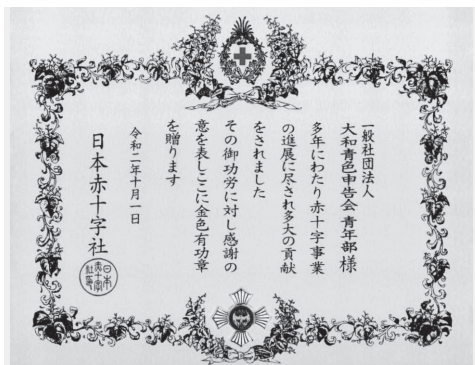 一般社団法人
大和青色申告会 青年部 様
多年にわたり赤十字事業
の進展に尽され多大の貢献
をされました
その御功労に対し感謝の
意を表しここに金色有功章
を贈ります
令和二年十月一日
日本赤十字社
日本赤十字社長